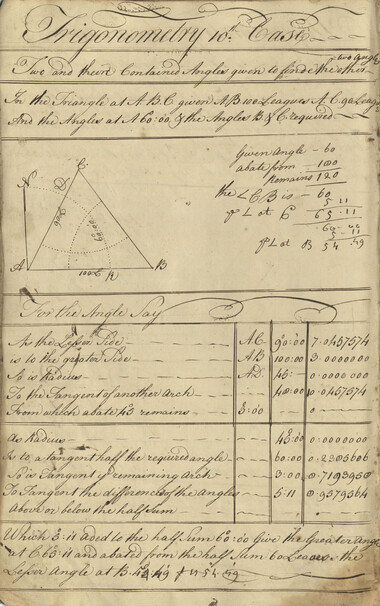 Trigonometry 10th Case
Two and their Contained Angles given to finde the other two Angles
In the Triangle at A B C given AB 100 Leagues A C 90 Leag
And the Angles at A 60:00 & the Angles B & C required
Given Angle - 60
abate from - 180
Remains 120
the L CB is - 60
5 11
ye L at C 65:11
60 00
5 11
ye L at B 54 49
N
C
D
A
B
100
For the Angle Say
As the Lesser Side - AC 90:00 7.0457574
is to the greater Side - AB 100:00 3.0000000
So is Radius - AD 45:- 0.0000000
To the Tangent of another Arch - 48:00 0.0457574
From which abate 45 remains - 3:00
As Radius - 45:00 0.0000000
Is to a tangent half the required angle - 60:00 0.2385606
So is Tangent ye remaining Arch - 3:00 8.7193958
To Tangent the difference of the Angles - 5:11 8.9579564
Above or below the half Sum
Which 5:11 added to the half Sum 60:00 Give the Greater Angle
at C 65:11 and abated from the half Sum 60 Leaves the
Lesser Angle at B 54 49